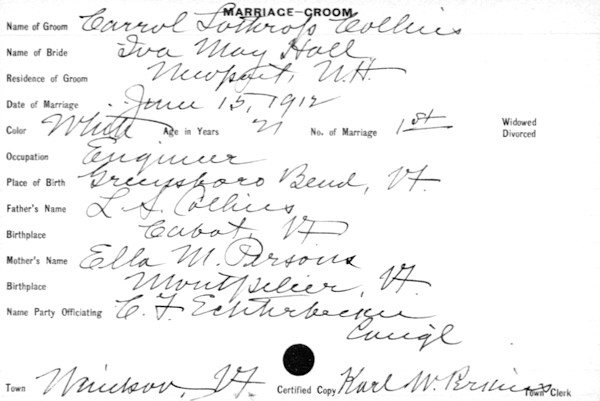 MARRIAGE-GROOM
Name of Groom Carrol Lothrop Collins
Name of Bride Iva May Hall
Residence of Groom Newport, N.H.
Date of Marriage June 15, 1912
Color White Age in Years 21 No. of Marriage 1st Widowed
Divorced
Occupation Engineer
Place of Birth Greensboro Bend, Vt.
Father's Name L. S. Collins
Birthplace Cabot, Vt
Mother's Name Ella M. Parsons
Birthplace Montpelier, Vt.
Name Party Officiating C. F. Echterbecker
Congl
Town Windsor, Vt. Certified Copy Karl W. Perkins Town Clerk